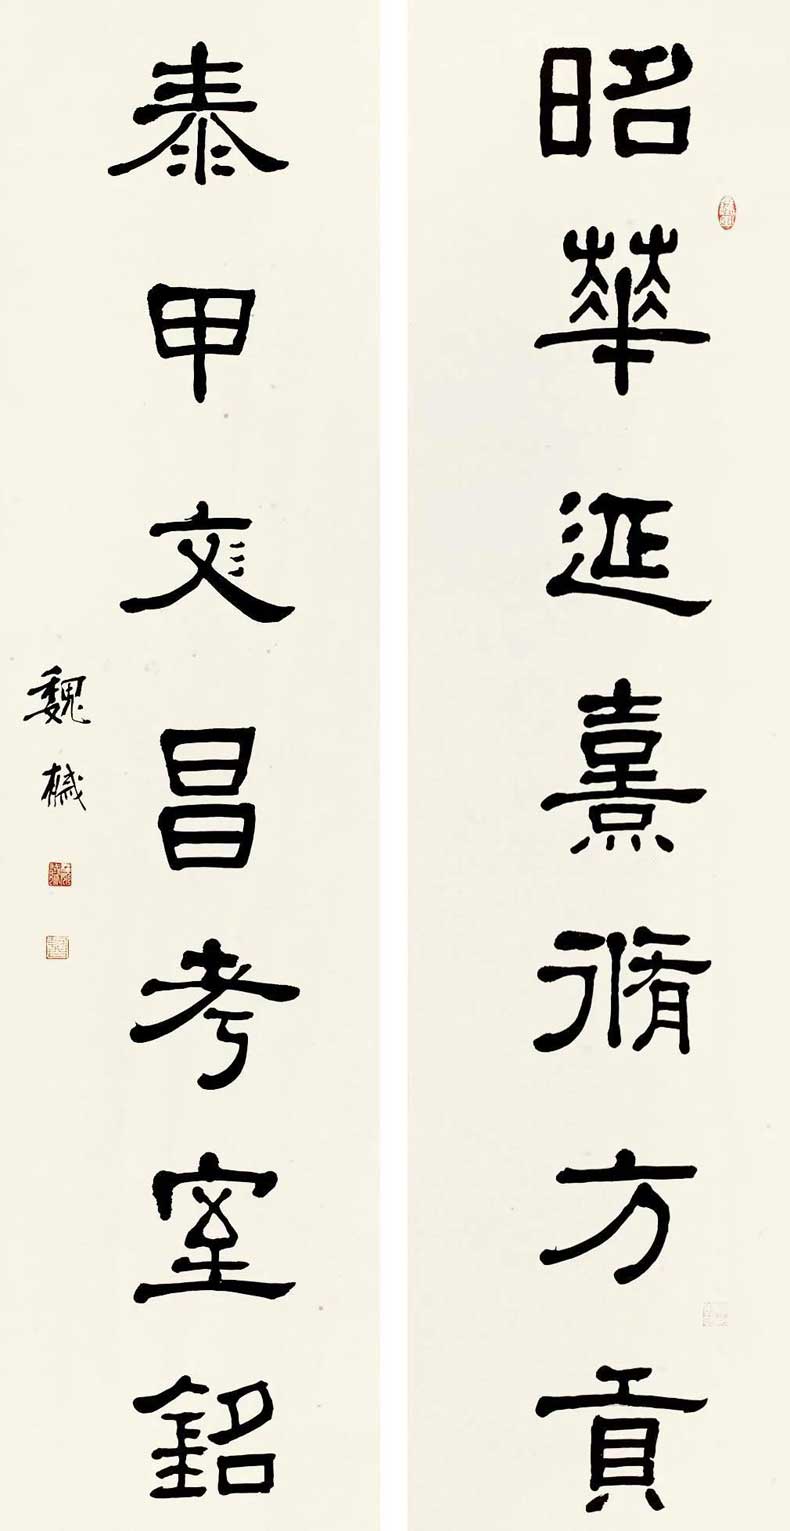 昭華延熹脩方貢
泰甲彣昌考室銘
魏戫